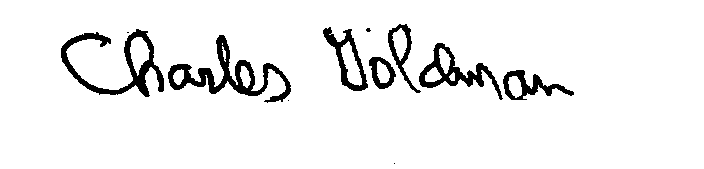 Charles Goldman